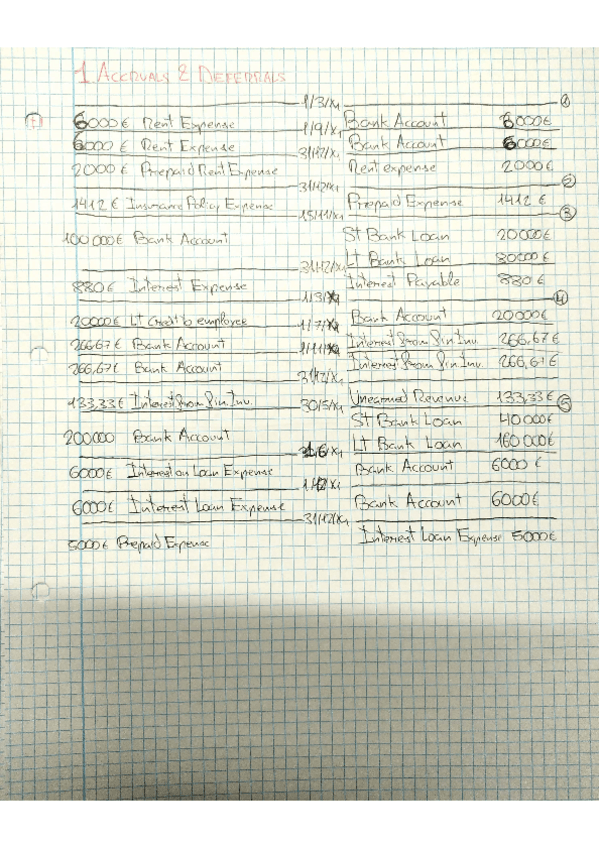 1 ACCRUALS & DEFERRALS
1/3/X1 ①
6000€ Rent Expense Bank Account 6000€
1/9/X1
6000€ Rent Expense Bank Account 6000€
31/12/X1
2000€ Prepaid Rent Expense Rent expense 2000€
31/12/X1 ②
1412€ Insurance Policy Expense Prepaid Expense 1412€
15/11/X1 ③
100000€ Bank Account ST Bank Loan 20000€
LT Bank Loan 80000€
31/12/X1
880€ Interest Expense Interest Payable 880€
1/3/X1 ④
20000€ LT Credit to employee Bank Account 20000€
1/7/X1
266,67€ Bank Account Interest from Fin Inv. 266,67€
1/11/X1
266,67€ Bank Account Interest from Fin Inv. 266,67€
31/12/X1
133,33€ Interest from Fin Inv. Unearned Revenue 133,33€
30/5/X1 ⑤
200000 Bank Account ST Bank Loan 40000€
LT Bank Loan 160000€
6000€ Interest on Loan Expense Bank Account 6000€
6000€ Interest Loan Expense Bank Account 6000€
31/12/X1
5000€ Prepaid Expense Interest Loan Expense 5000€